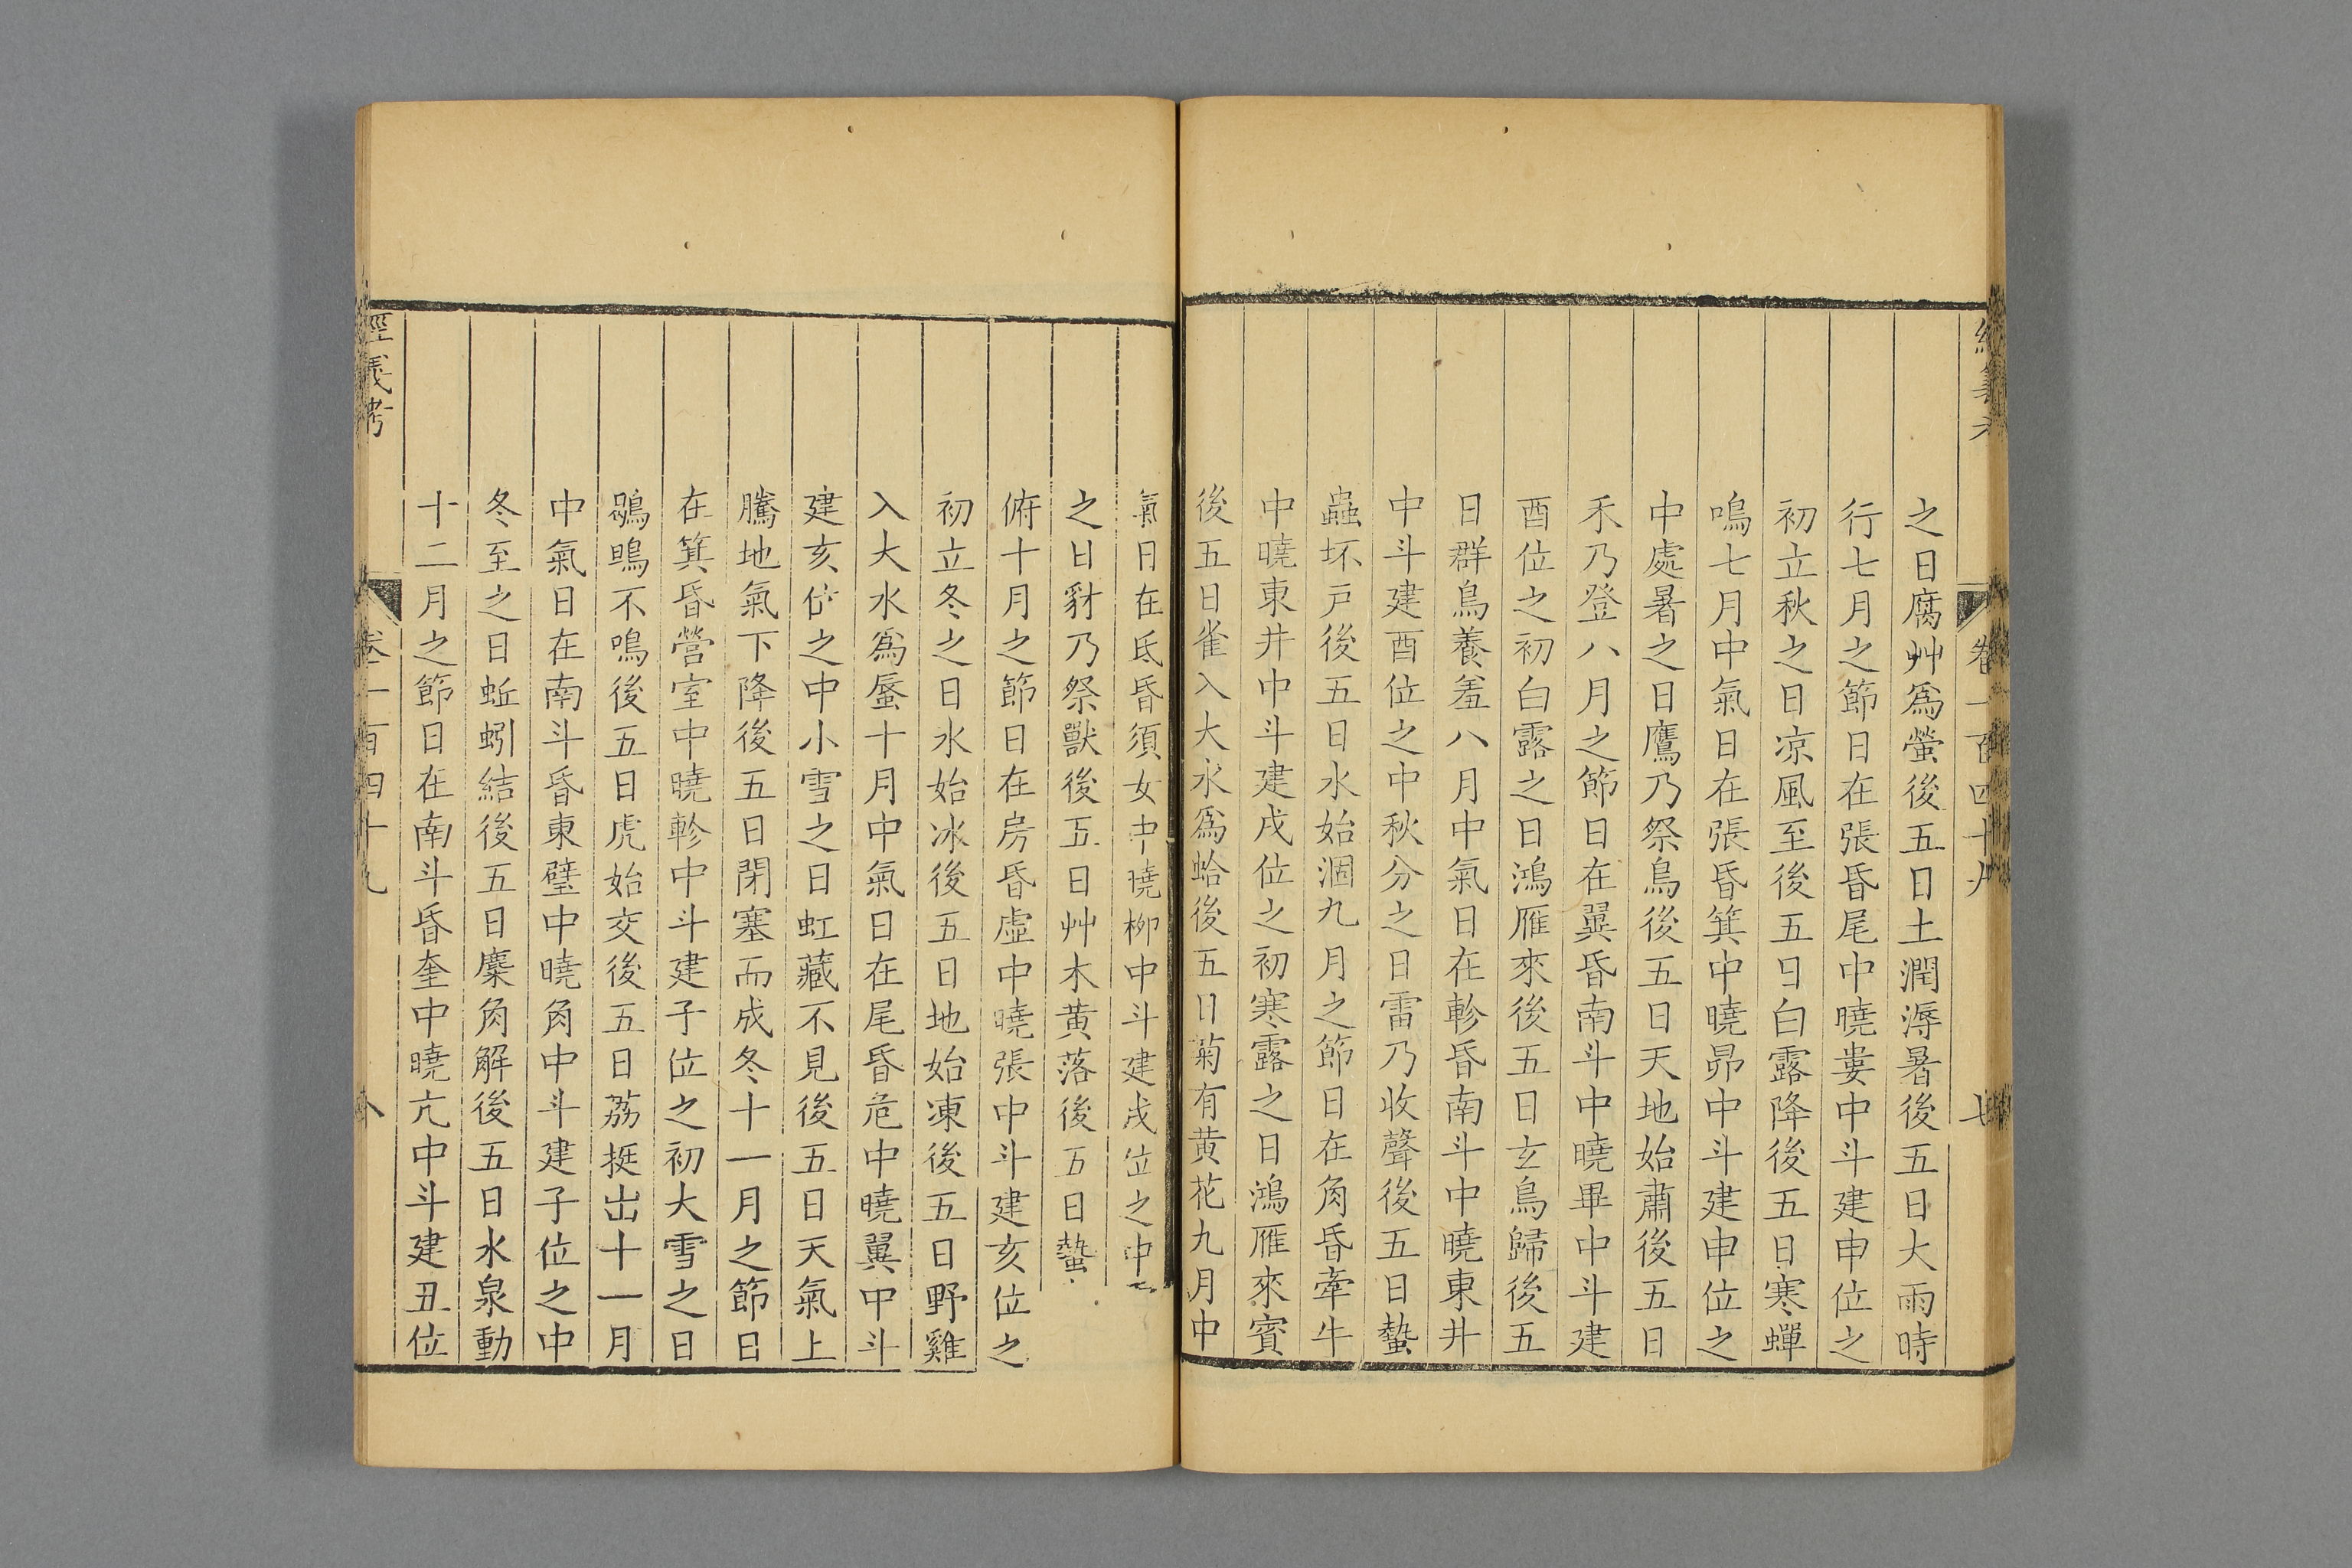 卷一百四十九
七
之日腐艸爲螢後五日土潤溽暑後五日大雨時
行七月之節日在張昏尾中曉婁中斗建申位之
初立秋之日凉風至後五日白露降後五日寒蟬
鳴七月中氣日在張昏箕中曉昴中斗建申位之
中處暑之日鷹乃祭鳥後五日天地始肅後五日
禾乃登八月之節日在翼昏南斗中曉畢中斗建
酉位之初白露之日鴻雁來後五日玄鳥歸後五
日群鳥養羞八月中氣日在軫昏南斗中曉東井
中斗建酉位之中秋分之日雷乃收聲後五日蟄
蟲坏戸後五日水始涸九月之節日在角昏牽牛
中曉東井中斗建戌位之初寒露之日鴻雁來賓
後五日雀入大水爲蛤後五日菊有黄花九月中
氣日在氐昏須女中曉柳中斗建戌位之中
之日豺乃祭獸後五日艸木黄落後五日蟄
俯十月之節日在房昏虛中曉張中斗建亥位之
初立冬之日水始冰後五日地始凍後五日野雞
入大水爲蜃十月中氣日在尾昏危中曉翼中斗
建亥位之中小雪之日虹藏不見後五日天氣上
騰地氣下降後五日閉塞而成冬十一月之節日
在箕昏營室中曉軫中斗建子位之初大雪之日
鶡鴠不鳴後五日虎始交後五日荔挺出十一月
中氣日在南斗昏東壁中曉角中斗建子位之中
冬至之日蚯蚓結後五日麋角解後五日水泉動
十二月之節日在南斗昏奎中曉亢中斗建丑位
經義考
卷一百四十九
八